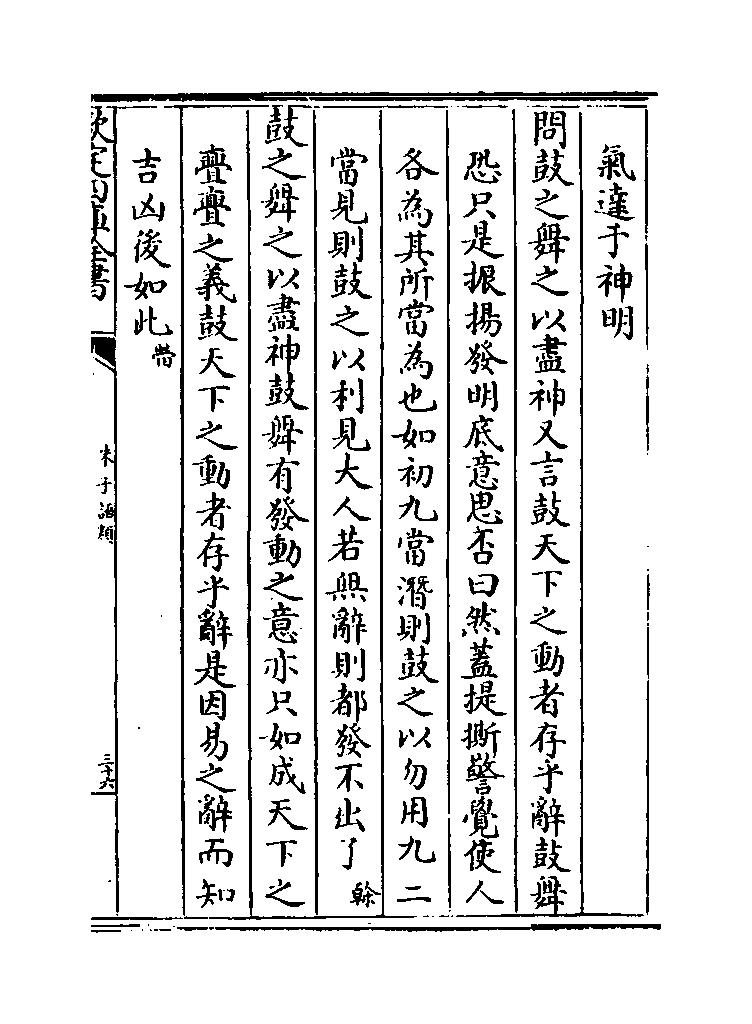 氣達于神明
問鼓之舞之以盡神又言鼓天下之動者存乎辭鼓舞
恐只是振揚發明底意思否曰然蓋提撕警覺使人
各為其所當為也如初九當潛則鼓之以勿用九二
當見則鼓之以利見大人若無辭則都發不出了 榦
鼓之舞之以盡神鼓舞有發動之意亦只如成天下之
亹亹之義鼓天下之動者存乎辭是因易之辭而知
吉凶後如此 㽦
欽定四庫全書
朱子語類
三十六